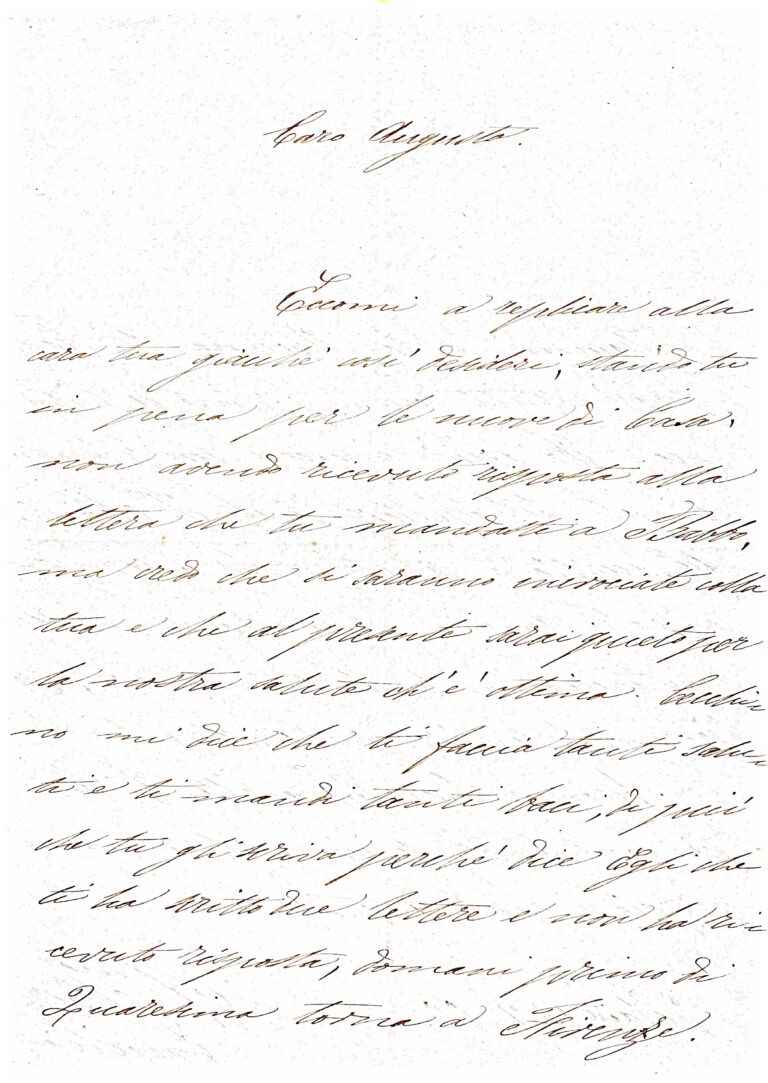 Caro Augusto.
Eccomi a replicare alla
cara tua giacchè così desideri, stando tu
in pena per le nuove di Casa,
non avendo ricevuto risposta alla
lettera che tu mandasti a Babbo,
ma credo che si saranno incrociate colla
tua e che al presente sarai quieto per
la nostra salute ch'è ottima. Cecchi-
no mi dice che ti faccia tanti salu-
ti e ti mandi tanti baci, di più
che tu gli scriva perchè dice Egli che
ti ha scritto due lettere e non ha ri-
cevuto risposta, domani primo di
Quaresima torna a Firenze.